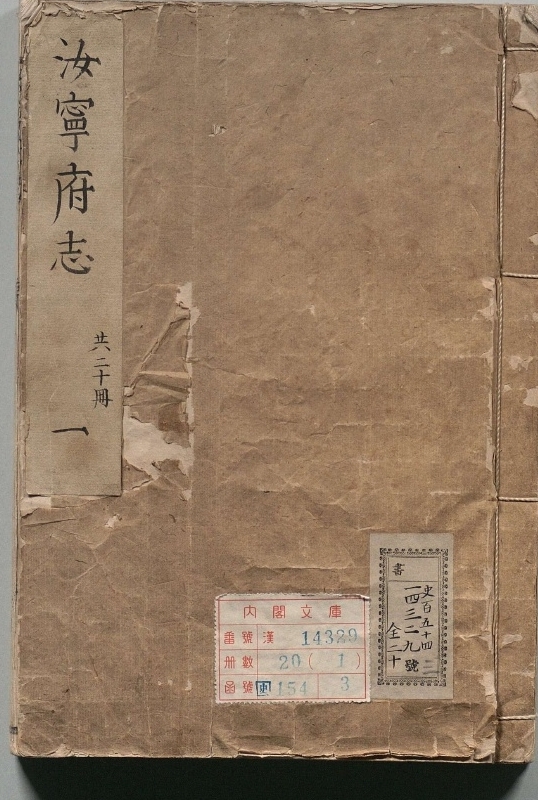 汝寧府志
共二十冊
一
書
史百五十四
一四三二九號
全二十
三
内閣文庫
番號 漢 14329
冊數 20 (1)
函號 史 154 3